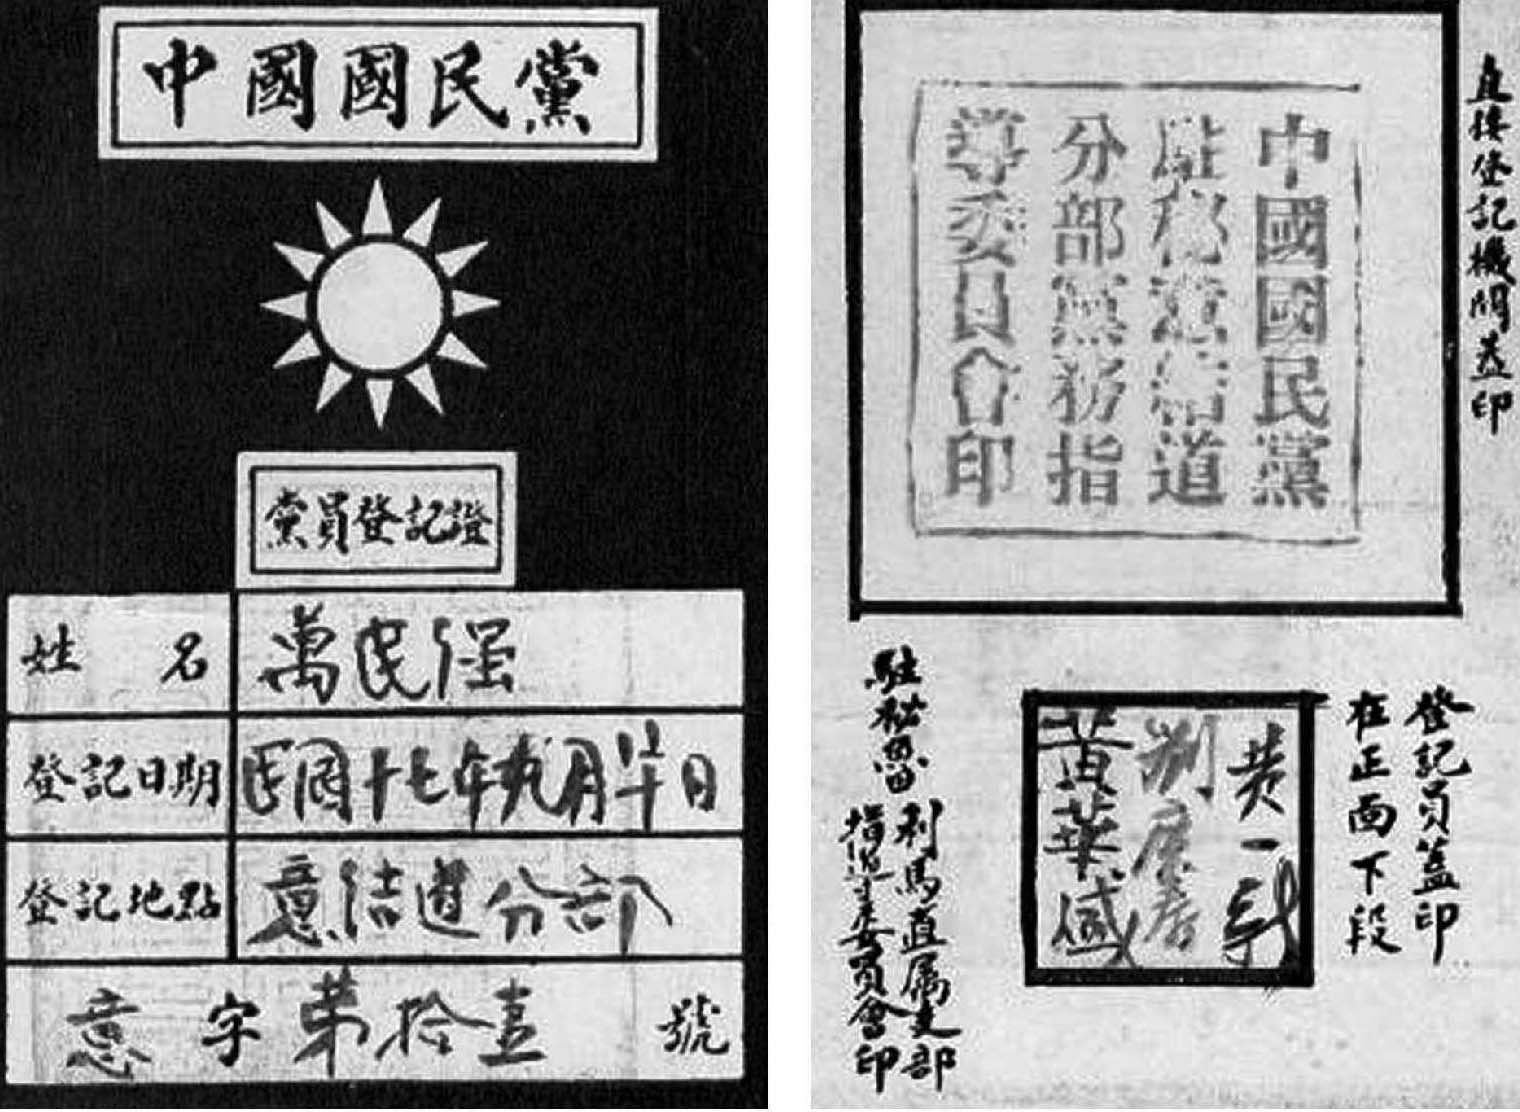 中國國民黨
黨員登記證
姓名 萬民强
登記日期 民國十七年九月廿日
登記地點 意结道分部
意字第拾壹號
直接登記機關蓋印
中國國民黨
駐秘意结道
分部黨務指
導委員會印
登記員蓋印
在正面下段
黄一
黃華盛
駐秘魯
利馬直属支部
指導委員會印